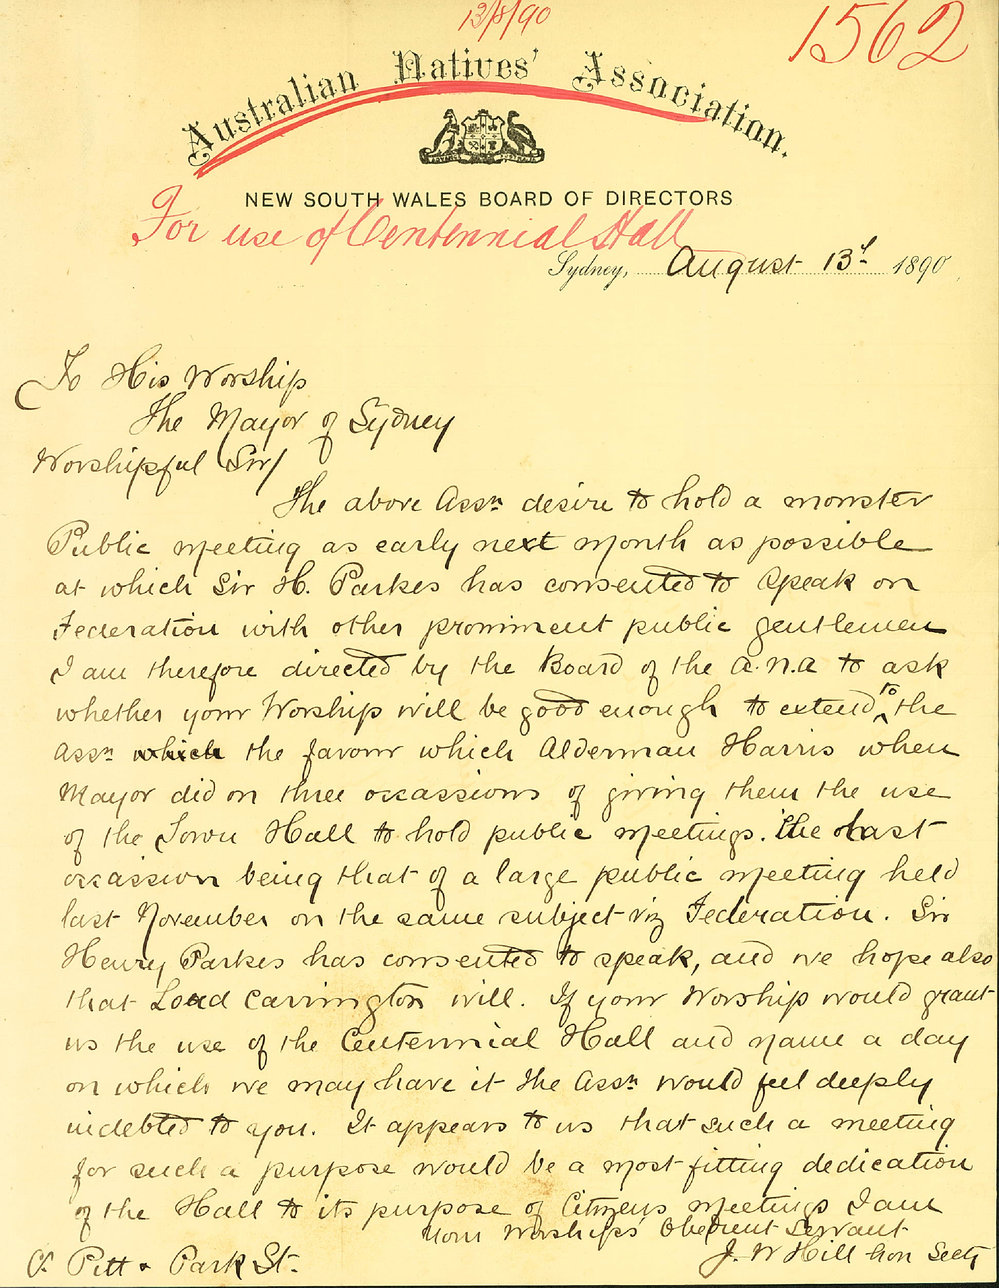 13/8/90
1562
Australian Natives' Association.
NEW SOUTH WALES BOARD OF DIRECTORS
For use of Centennial Hall
Sydney, August 13th 1890
To His Worship
The Mayor of Sydney
Worshipful Sir/
The above Assn desire to hold a monster
Public meeting as early next month as possible
at which Sir H. Parkes has consented to speak on
Federation with other prominent public gentlemen
I am therefore directed by the Board of the A.N.A to ask
whether your Worship will be good enough to extend to the
Assn which the favour which Alderman Harris when
Mayor did on three occassions of giving them the use
of the Town Hall to hold public meetings. The last
occassion being that of a large public meeting held
last November on the same subject viz Federation. Sir
Henry Parkes has consented to speak, and we hope also
that Lord Carrington will. If your Worship would grant
us the use of the Centennial Hall and name a day
on which we may have it the Assn would feel deeply
indebted to you. It appears to us that such a meeting
for such a purpose would be a most fitting dedication
of the Hall to its purpose of Citizens meetings I am
Your Worship's Obedient Servant
J. W Hill Hon Secty
Cr Pitt & Park St.